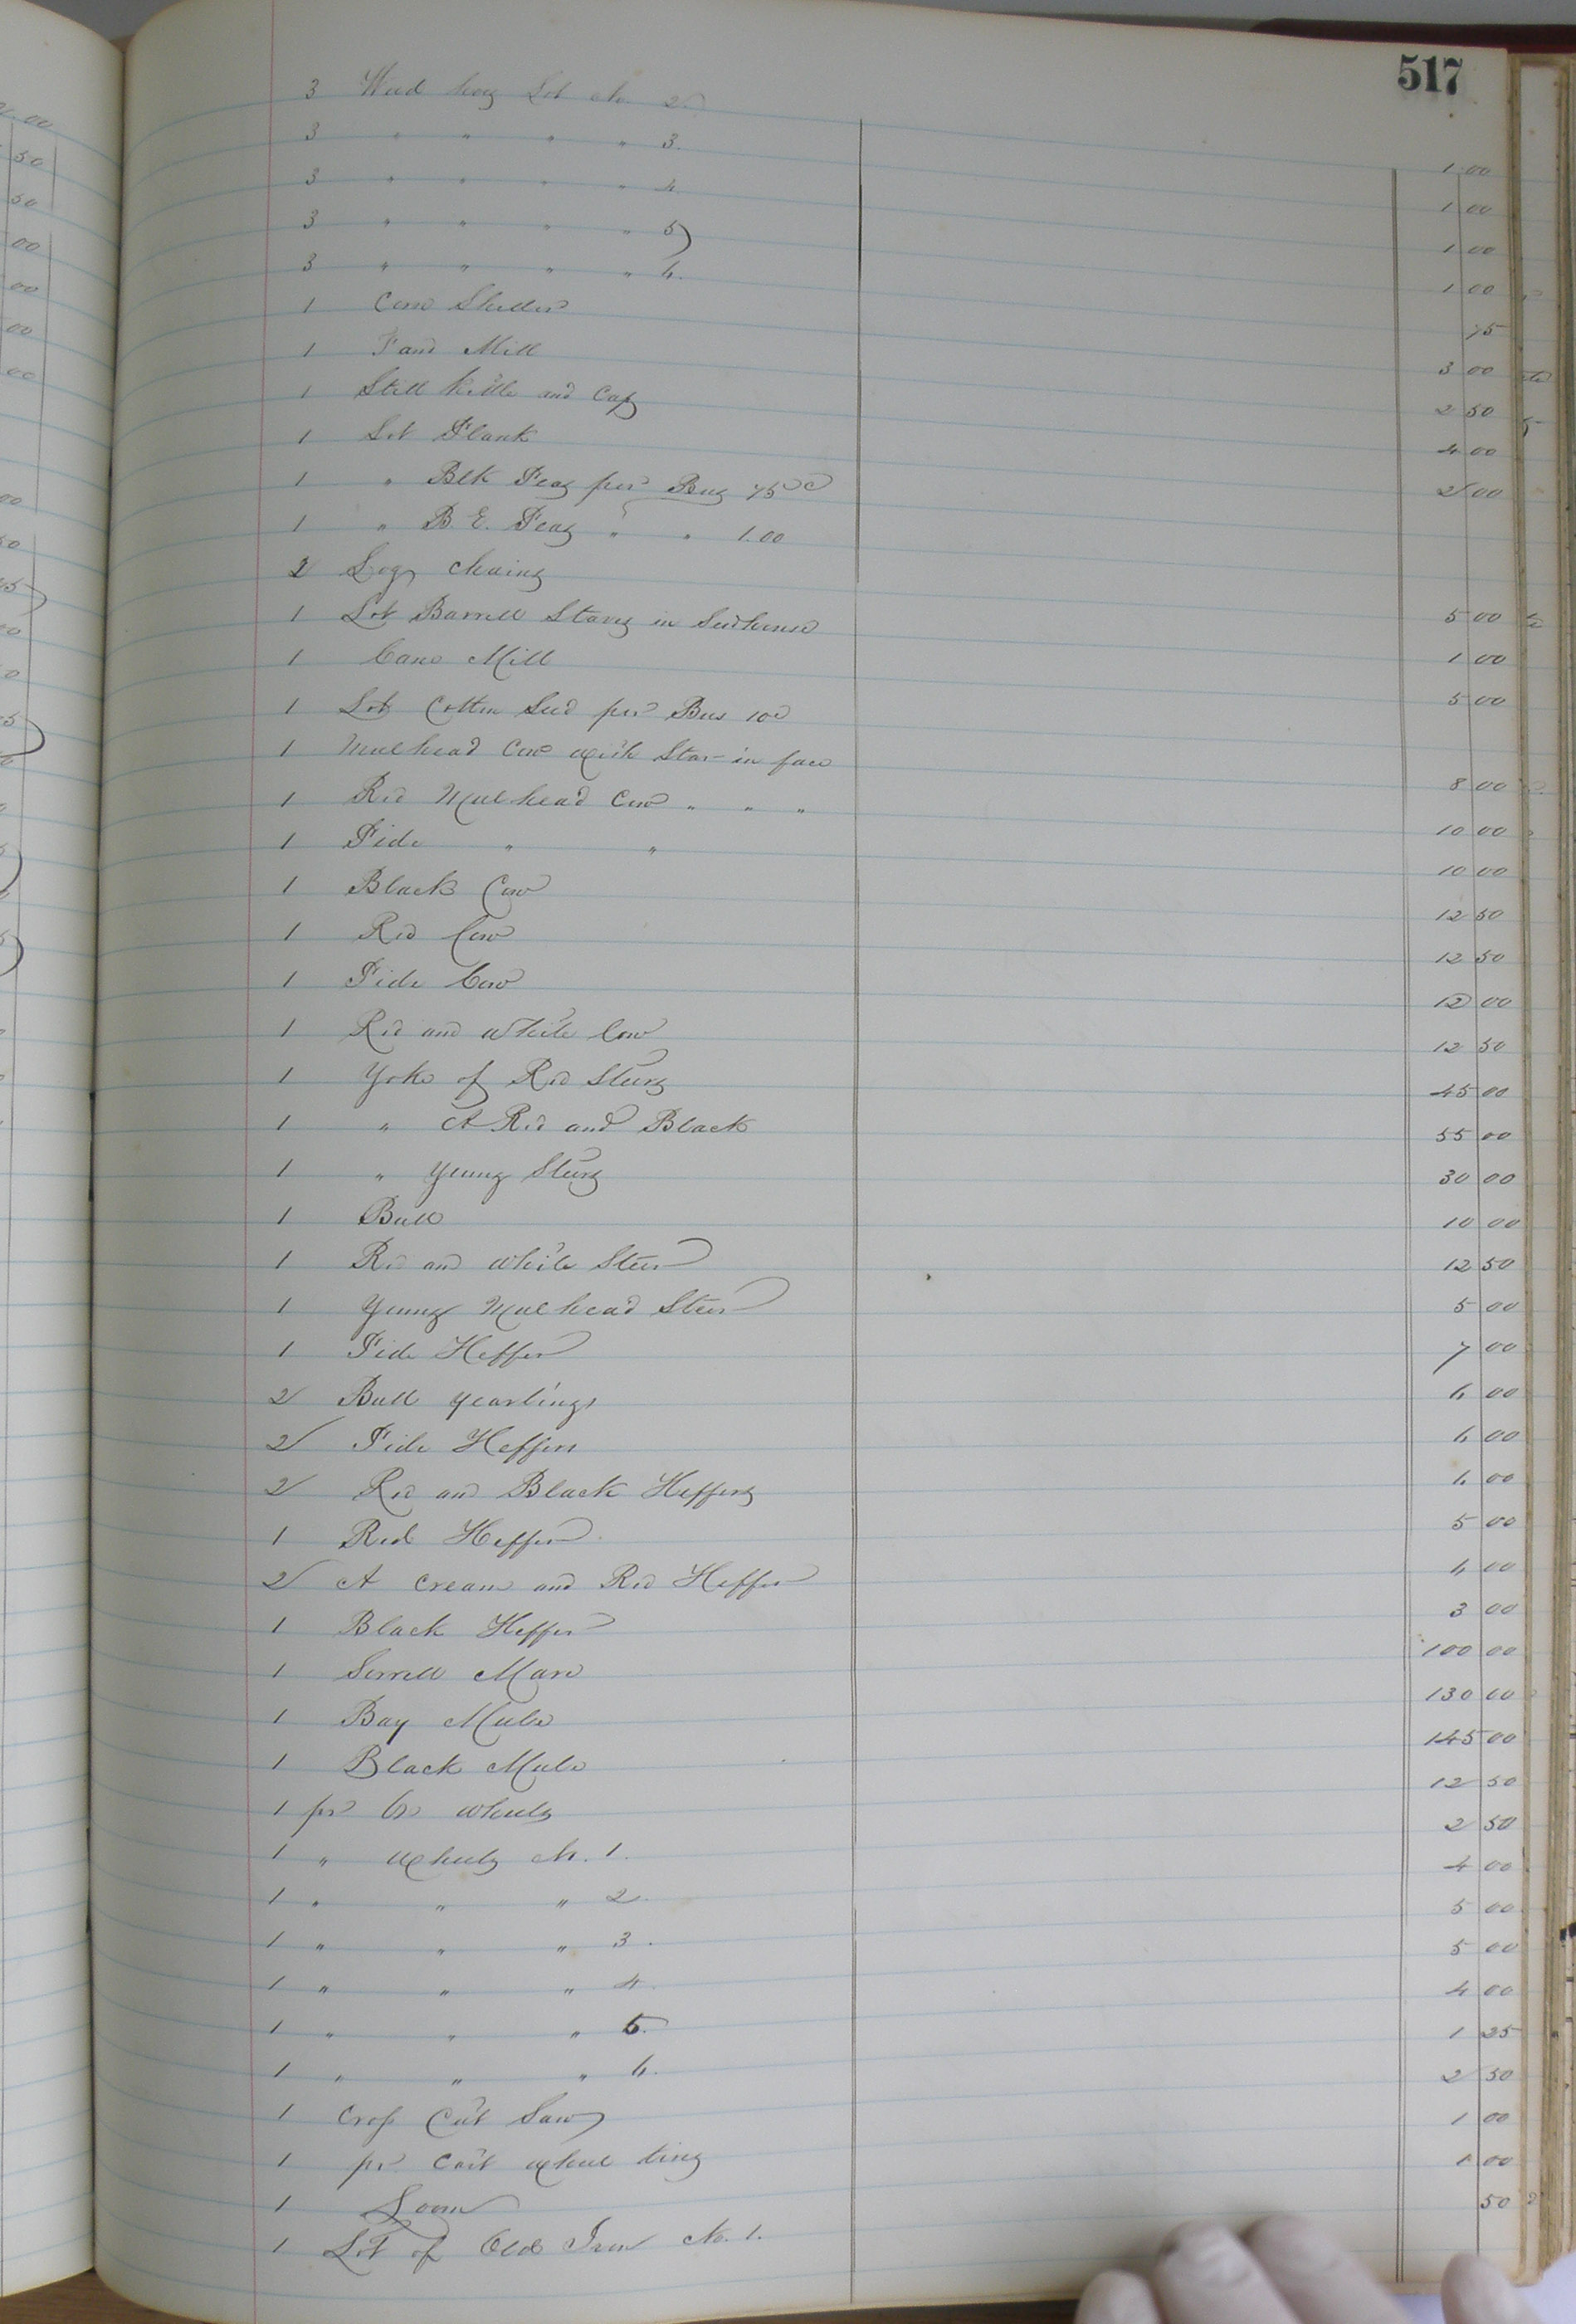 517
3 Weed hoes Lot No. 2 1 00
3 " " " " 3. 1 00
3 " " " " 4. 1 00
3 " " " " 5 1 00
3 " " " " 6. 75
1 Corn Sheller 3 00
1 Fand Mill 2 50
1 Still Kettle and Cap 4 00
1 Lot Plank 2 00
1 " Blk Peas per Bus 75 c
1 " B. E. Peas " " 1.00
2 Log chains 5 00
1 Lot Barrell Staves in Seedhouse 1 00
1 Cane Mill 5 00
1 Lot Cotton Seed per Bus 10c
1 Mulhead Cow with Star in face 8 00
1 Red Mulhead Cow " " " 10 00
1 Pide " " 10 00
1 Black Cow 12 50
1 Red Cow 12 50
1 Pide Cow 12 00
1 Red and White Cow 12 50
1 Yoke of Red Steers 45 00
1 " A Red and Black 55 00
1 " Young Steers 30 00
1 Bull 10 00
1 Red and White Steer 12 50
1 Young Mulhead Steer 5 00
1 Pide Heffer 7 00
2 Bull yearlings 6 00
2 Pide Heffers 6 00
2 Red and Black Heffers 6 00
1 Red Heffer 5 00
2 A Cream and Red Heffer 6 00
1 Black Heffer 3 00
1 Sorrell Mare 100 00
1 Bay Mule 130 00
1 Black Mule 145 00
1 pr Ox Wheels 12 50
1 " Wheels No. 1. 2 50
1 " " " 2. 4 00
1 " " " 3. 5 00
1 " " " 4. 5 00
1 " " " 5. 4 00
1 " " " 6. 1 25
1 Crop Cut Saw 2 50
1 pr Cart Wheel tires 1 00
1 Loom 1 00
1 Lot of Old Iron No. 1. 50